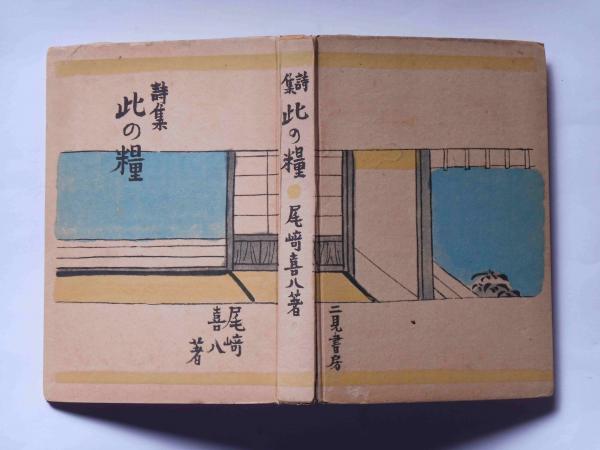 詩集
此の糧
尾﨑
喜八
著
詩集
此の糧
尾﨑喜八著
二見書房